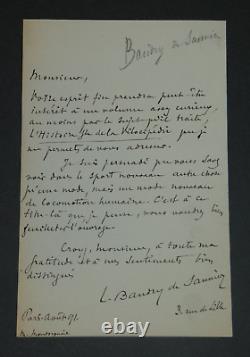 Baudry de Saunier
Monsieur,
Votre esprit fin prendra peut être
intérêt à un volume assez curieux,
au moins par le sujet qu'il traite,
L'Histoire de la Vélocipédie que je
me permets de vous adresser.
Je suis persuadé que vous
voir dans le sport nouveau autre chose
qu'une mode, mais un mode nouveau
de locomotion humaine. C'est à ce
titre là que je pense, vous voudrez bien
feuilleter l'ouvrage.
Croyez, monsieur, à toute ma
gratitude et à mes sentiments bien
distingués
L. Baudry de Saunier
Paris-Août 91.